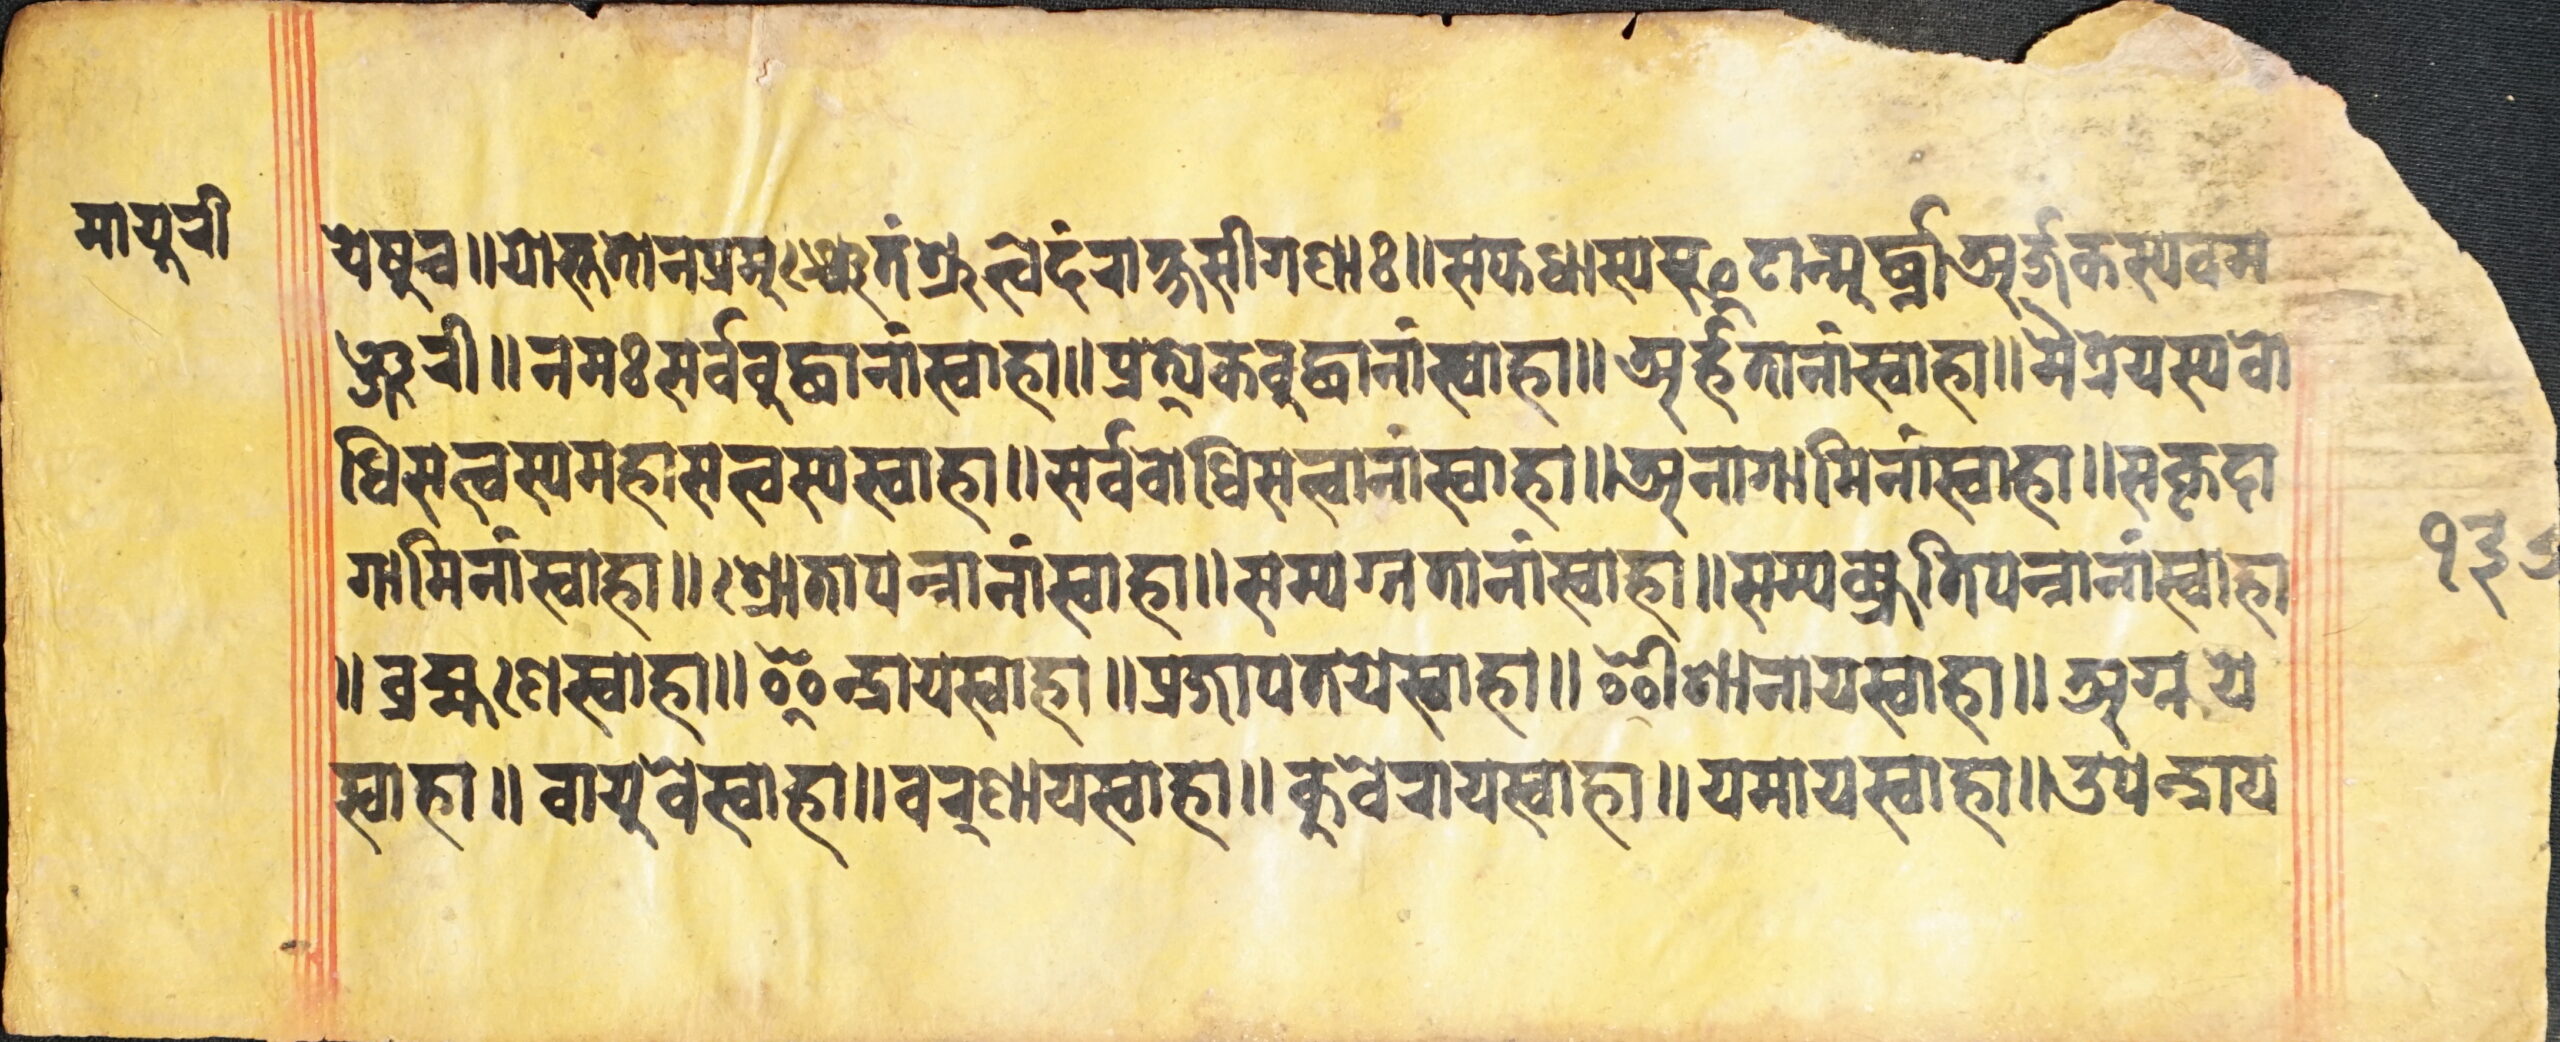 मायुरी
येषुच॥योस्ततोनप्रमुञ्चेतंश्रुत्वेदंराक्षसीगणाः॥सप्तधास्यस्फुटान्मुर्द्ध्नाअर्जकस्यवम
ञ्जरी॥नमःसर्वबुद्धानांस्वाहा॥प्रत्येकबुद्धानांस्वाहा॥अर्हतानांस्वाहा॥मैत्रेयस्यबो
धिसत्वस्यमहासत्वस्यस्वाहा॥सर्वबोधिसत्वानांस्वाहा॥अनागामिनांस्वाहा॥सकृदा
गामिनांस्वाहा॥श्रोतापन्नानांस्वाहा॥सम्यग्गतानांस्वाहा॥सम्यक्प्रतिपन्नानांस्वाहा
॥ब्रह्मणेस्वाहा॥इन्द्रायस्वाहा॥प्रजापतयेस्वाहा॥ईशानायस्वाहा॥अग्नये
स्वाहा॥वायुवेस्वाहा॥वरुणायस्वाहा॥कुबेरायस्वाहा॥यमायस्वाहा॥उपेन्द्राय